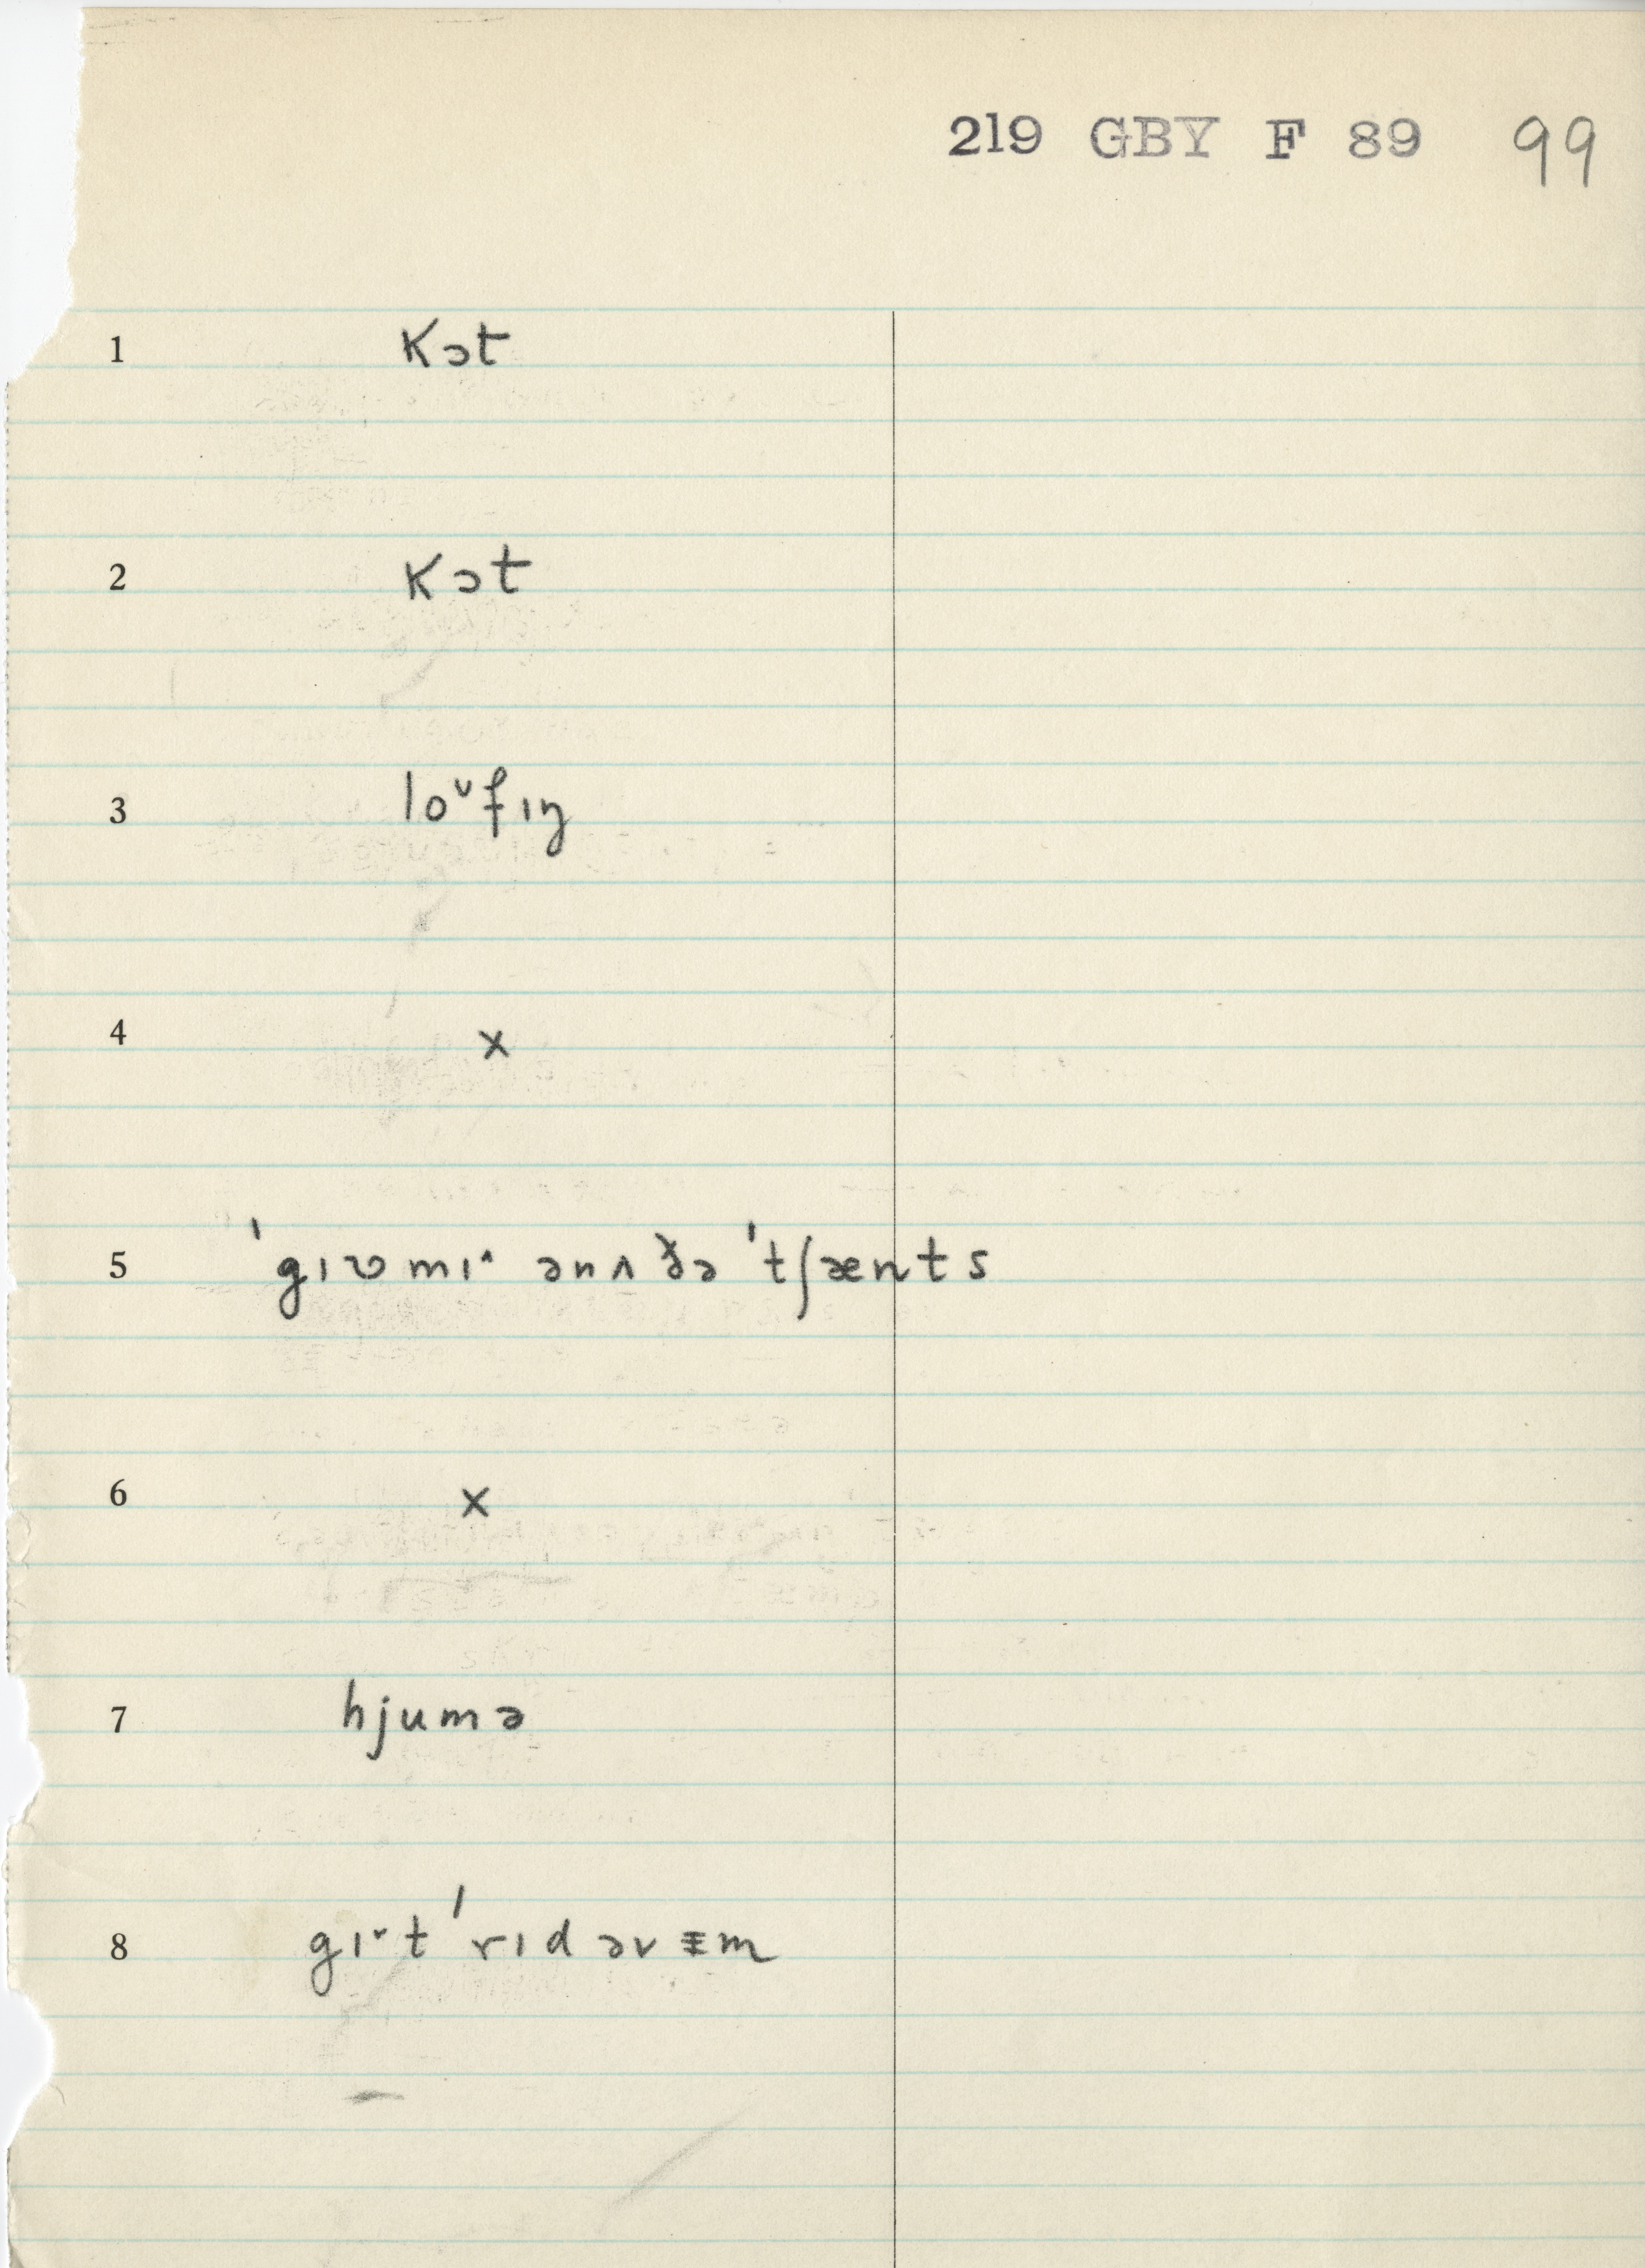 219 GBY F 89 99
1 kɔt
2 kɔt
3 loᶷfɪŋ
4 x
5 ˈgɪʋmɪ˄ ənʌðə ˈtʃænts
6 x
7 hjumə
8 gɪ˅t ˈrɪd əv ᵻm